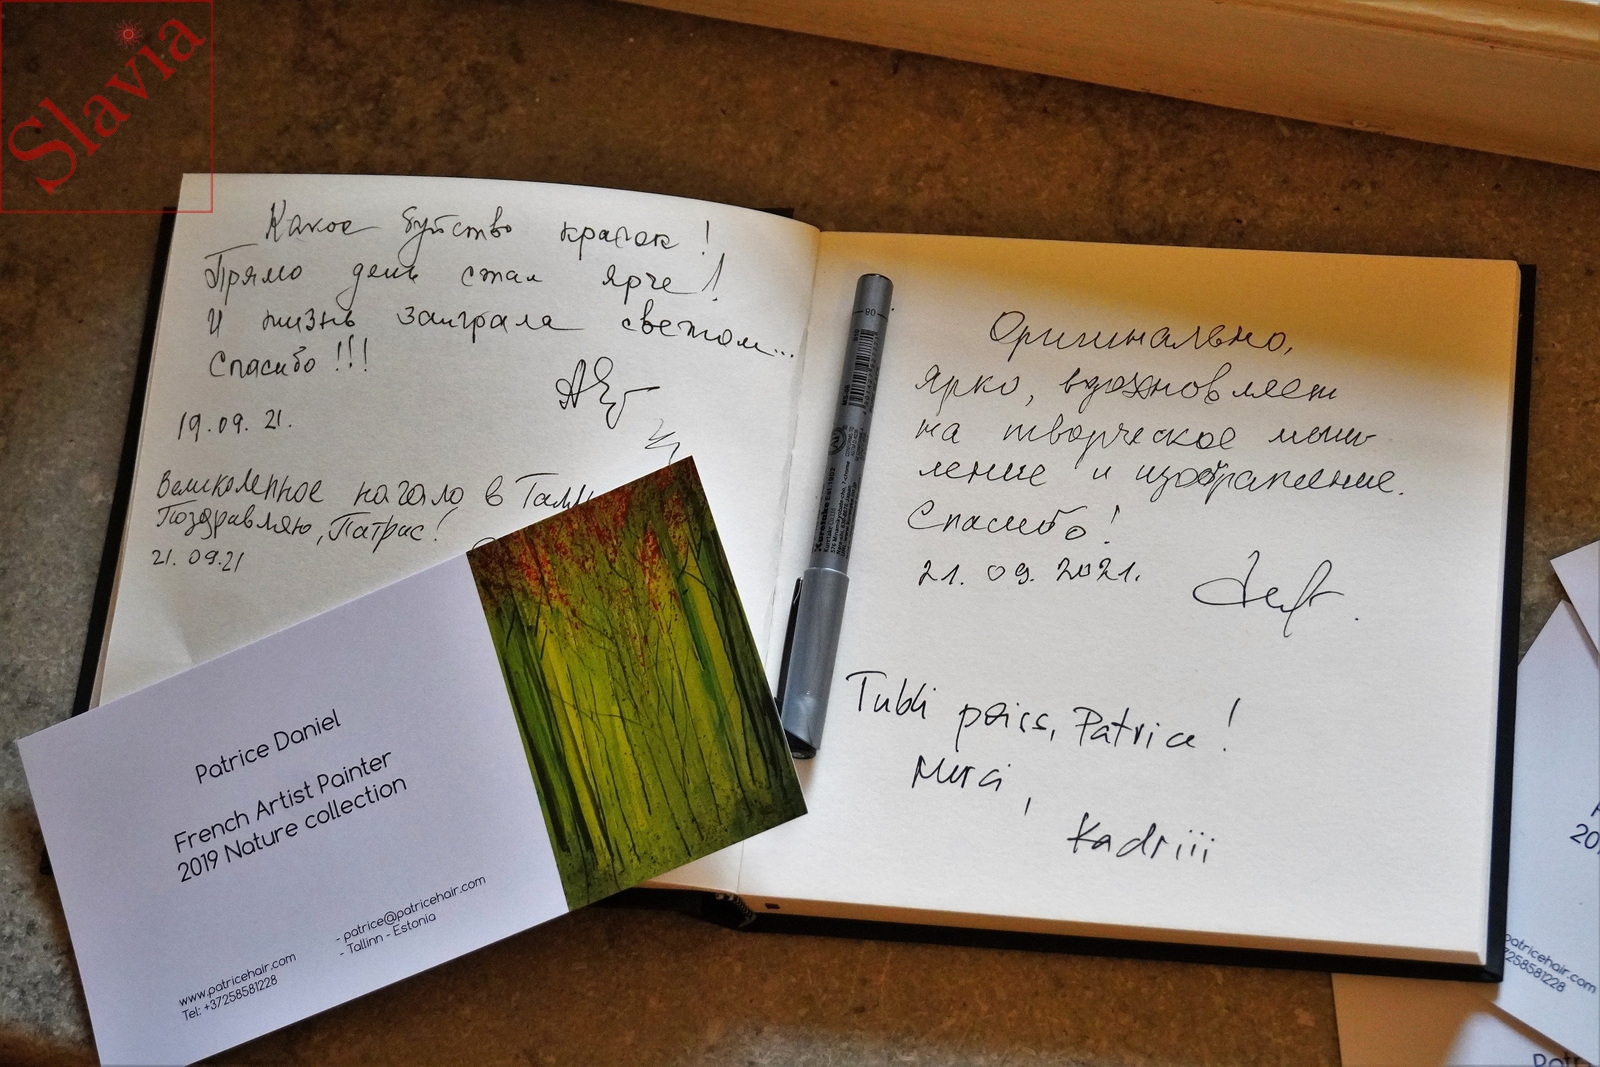 Slavia
Какое буйство красок!
Прямо день стал ярче!
И жизнь заиграла светом...
Спасибо!!!
19.09.21.
Великолепное начало в Талли
Поздравляю, Патрис!
21.09.21
Оригинально,
ярко, вдохновляет
на творческое мыш-
ление и изображение.
Спасибо!
21.09.2021.
Tubli poiss, Patrice!
Merci,
Kadriii
Patrice Daniel
French Artist Painter
2019 Nature collection
- patrice@patricehair.com
- Tallinn - Estonia
www.patricehair.com
Tel: +37258581228
80
20
patricehair.com
7258581228
Patr